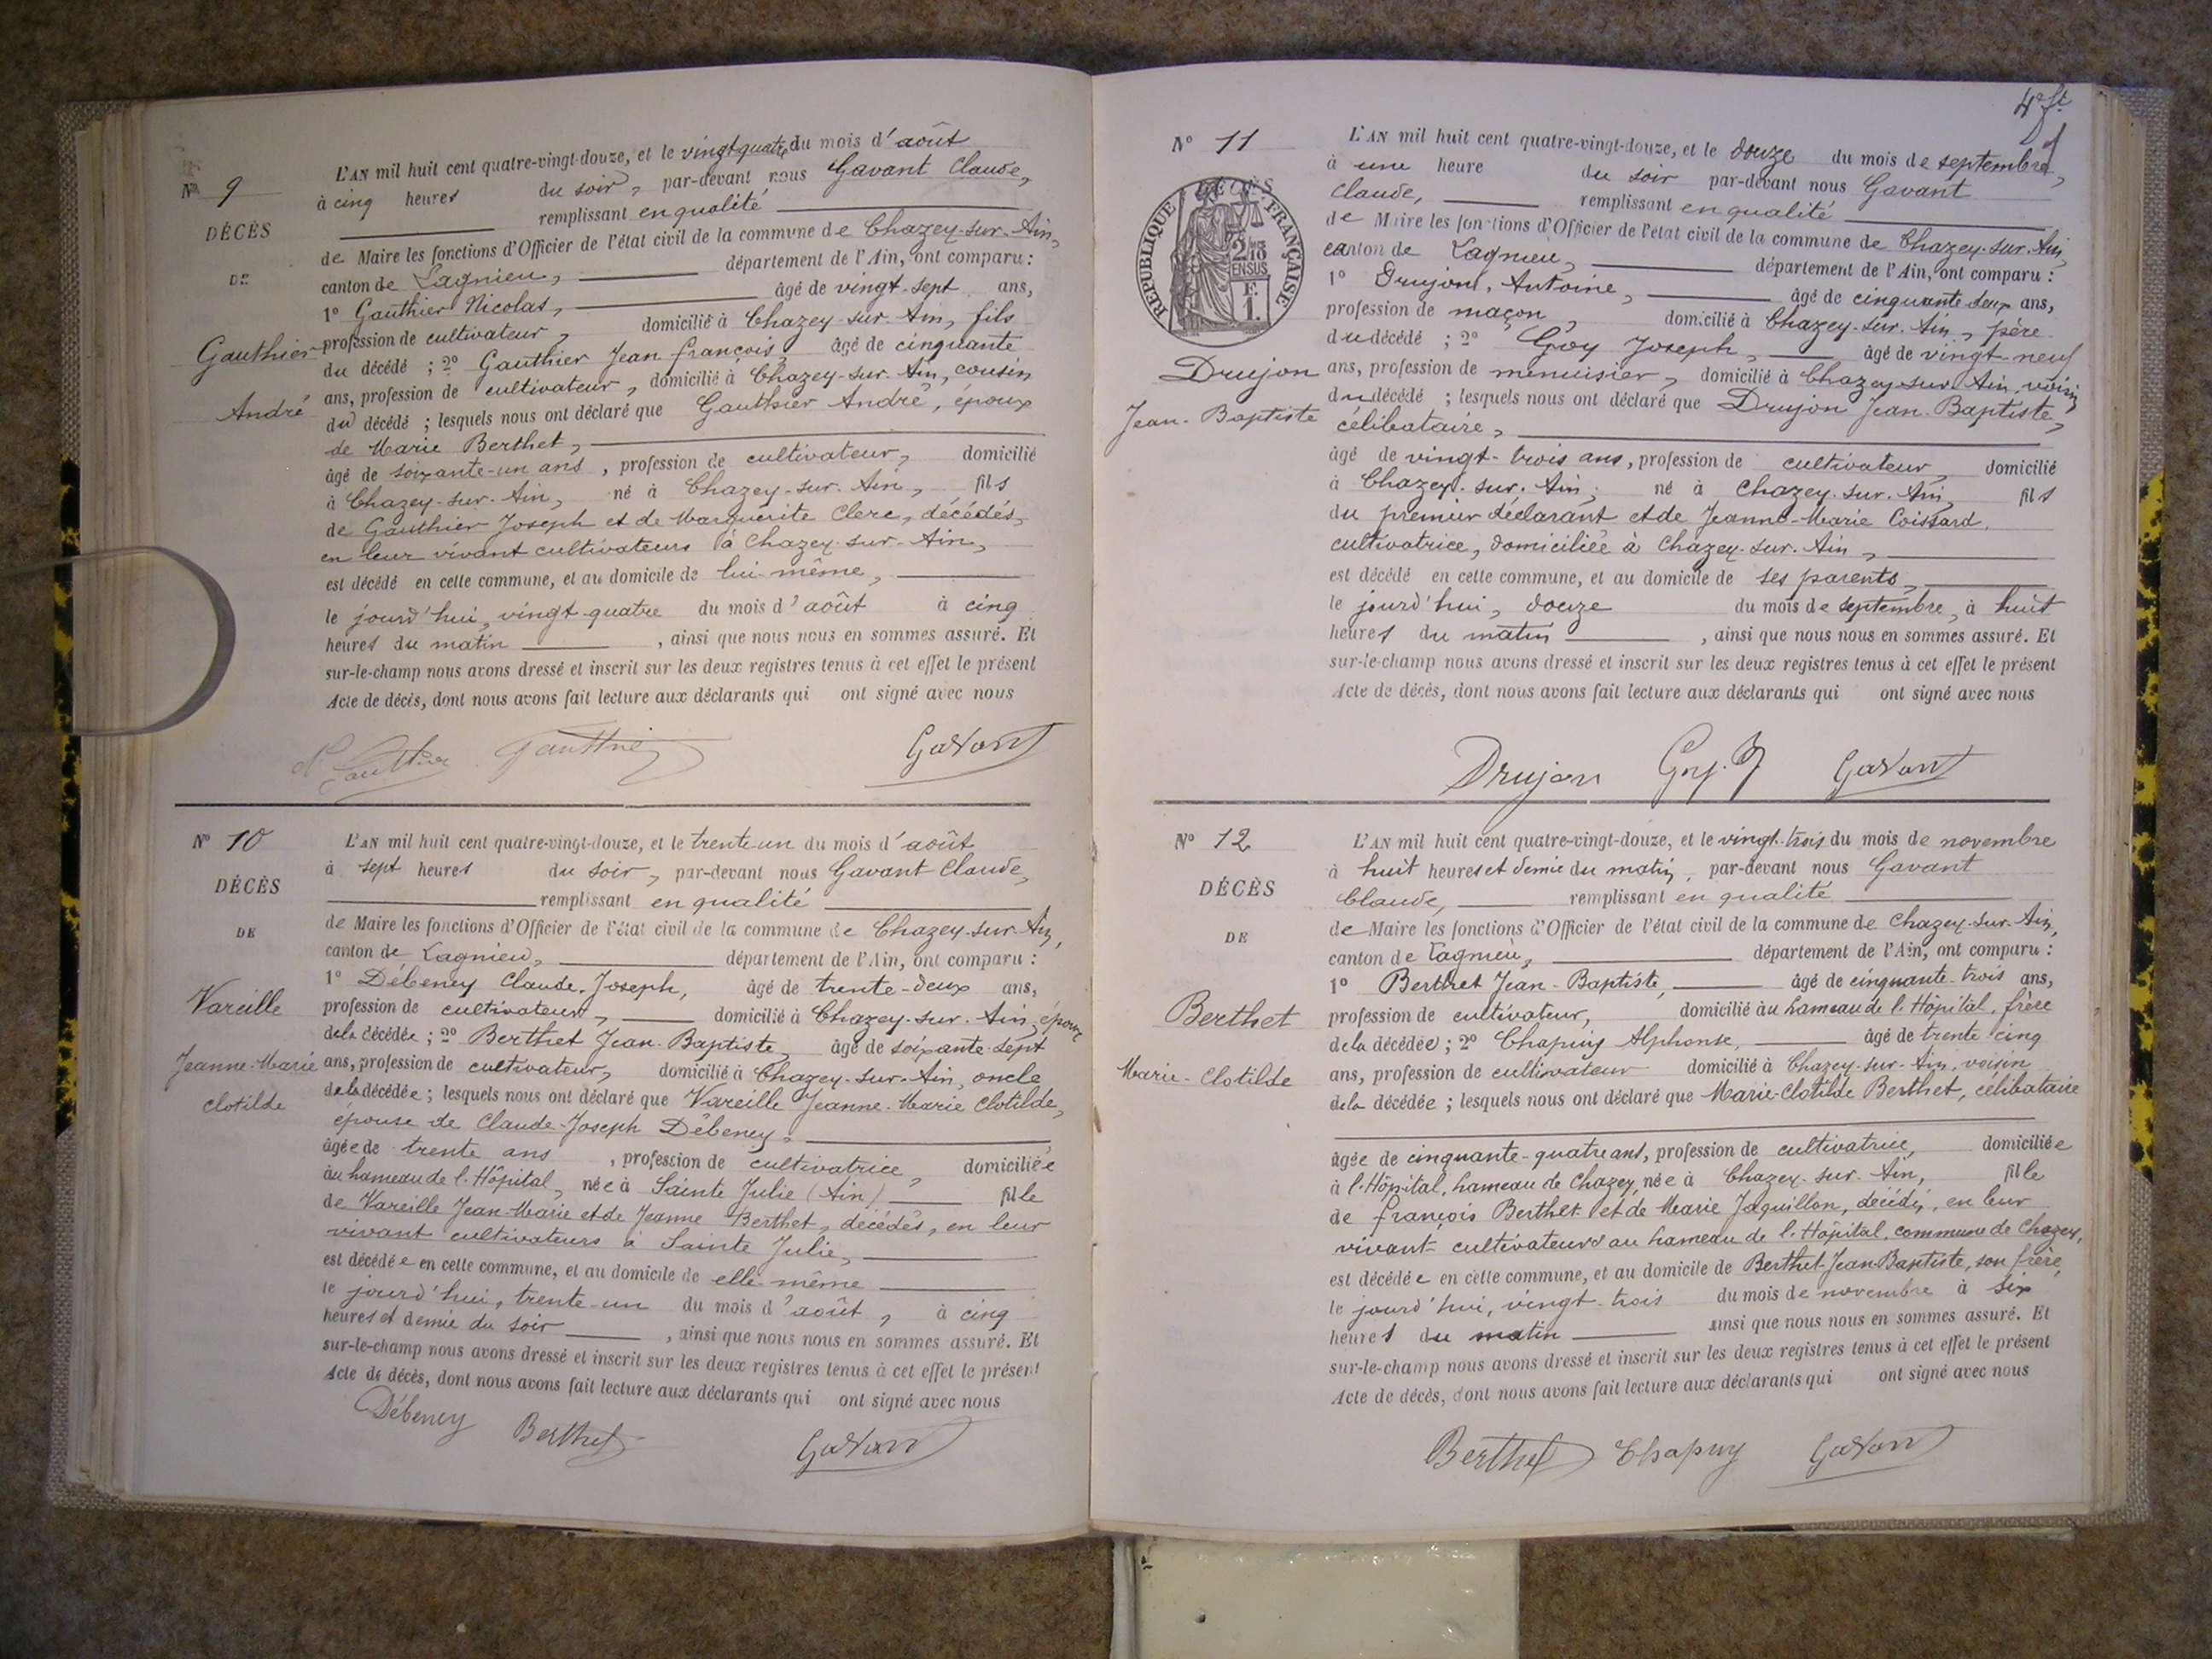 N° 9
DÉCÈS
DE
Gauthier
André
L'AN mil huit cent quatre-vingt-douze, et le vingt quatre du mois d'août
à cinq heures du soir, par-devant nous Gavant Claude,
remplissant en qualité
de Maire les fonctions d'Officier de l'état civil de la commune de Chazey-sur-Ain,
canton de Lagnieu, département de l'Ain, ont comparu :
1° Gauthier Nicolas, âgé de vingt-sept ans,
profession de cultivateur, domicilié à Chazey-sur-Ain, fils
du décédé ; 2° Gauthier Jean François, âgé de cinquante
ans, profession de cultivateur, domicilié à Chazey-sur-Ain, cousin
du décédé ; lesquels nous ont déclaré que Gauthier André, époux
de Marie Berthet,
âgé de soixante-un ans, profession de cultivateur, domicilié
à Chazey-sur-Ain, né à Chazey-sur-Ain, fils
de Gauthier Joseph et de Marguerite Clerc, décédés,
en leur vivant cultivateurs à Chazey-sur-Ain,
est décédé en cette commune, et au domicile de lui-même,
le jourd'hui, vingt-quatre du mois d'août à cinq
heures du matin, ainsi que nous nous en sommes assuré. Et
sur-le-champ nous avons dressé et inscrit sur les deux registres tenus à cet effet le présent
Acte de décès, dont nous avons fait lecture aux déclarants qui ont signé avec nous
Gauthier Gauthier Gavant
N° 10
DÉCÈS
DE
Vareille
Jeanne-Marie
Clotilde
L'AN mil huit cent quatre-vingt-douze, et le trente-un du mois d'août
à sept heures du soir, par-devant nous Gavant Claude,
remplissant en qualité
de Maire les fonctions d'Officier de l'état civil de la commune de Chazey-sur-Ain,
canton de Lagnieu, département de l'Ain, ont comparu :
1° Débeney Claude-Joseph, âgé de trente-deux ans,
profession de cultivateur, domicilié à Chazey-sur-Ain, époux
de la décédée ; 2° Berthet Jean-Baptiste, âgé de soixante-sept
ans, profession de cultivateur, domicilié à Chazey-sur-Ain, oncle
de la décédée ; lesquels nous ont déclaré que Vareille Jeanne-Marie Clotilde,
épouse de Claude-Joseph Débeney,
âgée de trente ans, profession de cultivatrice, domiciliée
au hameau de l'Hôpital, née à Sainte Julie (Ain) fille
de Vareille Jean-Marie et de Jeanne Berthet, décédés, en leur
vivant cultivateurs à Sainte Julie,
est décédée en cette commune, et au domicile de elle-même
le jourd'hui, trente-un du mois d'août, à cinq
heures et demie du soir, ainsi que nous nous en sommes assuré. Et
sur-le-champ nous avons dressé et inscrit sur les deux registres tenus à cet effet le présent
Acte de décès, dont nous avons fait lecture aux déclarants qui ont signé avec nous
Débeney Berthet Gavant
4e ft
N° 11
DÉCÈS
RÉPUBLIQUE FRANÇAISE
2/10 EN SUS
F.
1.
Drujon
Jean-Baptiste
L'AN mil huit cent quatre-vingt-douze, et le douze du mois de septembre,
à une heure du soir par-devant nous Gavant
Claude, remplissant en qualité
de Maire les fonctions d'Officier de l'état civil de la commune de Chazey-sur-Ain,
canton de Lagnieu, département de l'Ain, ont comparu :
1° Drujon, Antoine, âgé de cinquante-deux ans,
profession de maçon, domicilié à Chazey-sur-Ain, père
du décédé ; 2° Goy Joseph, âgé de vingt-neuf
ans, profession de menuisier, domicilié à Chazey-sur-Ain, voisin
du décédé ; lesquels nous ont déclaré que Drujon Jean-Baptiste,
célibataire,
âgé de vingt-trois ans, profession de cultivateur, domicilié
à Chazey-sur-Ain, né à Chazey-sur-Ain, fils
du premier déclarant et de Jeanne-Marie Coissard,
cultivatrice, domiciliée à Chazey-sur-Ain,
est décédé en cette commune, et au domicile de ses parents,
le jourd'hui, douze du mois de septembre, à huit
heures du matin, ainsi que nous nous en sommes assuré. Et
sur-le-champ nous avons dressé et inscrit sur les deux registres tenus à cet effet le présent
Acte de décès, dont nous avons fait lecture aux déclarants qui ont signé avec nous
Drujon Goy. J Gavant
N° 12
DÉCÈS
DE
Berthet
Marie-Clotilde
L'AN mil huit cent quatre-vingt-douze, et le vingt-trois du mois de novembre
à huit heures et demie du matin, par-devant nous Gavant
Claude, remplissant en qualité
de Maire les fonctions d'Officier de l'état civil de la commune de Chazey-sur-Ain,
canton de Lagnieu, département de l'Ain, ont comparu :
1° Berthet Jean-Baptiste, âgé de cinquante-trois ans,
profession de cultivateur, domicilié au hameau de l'Hôpital, frère
de la décédée ; 2° Chapuy Alphonse, âgé de trente-cinq
ans, profession de cultivateur domicilié à Chazey-sur-Ain, voisin
de la décédée ; lesquels nous ont déclaré que Marie-Clotilde Berthet, célibataire
âgée de cinquante-quatre ans, profession de cultivatrice, domiciliée
à l'Hôpital, hameau de Chazey, née à Chazey-sur-Ain, fille
de François Berthet et de Marie Jaquillon, décédés, en leur
vivant cultivateurs au hameau de l'Hôpital, commune de Chazey,
est décédée en cette commune, et au domicile de Berthet Jean-Baptiste, son frère,
le jourd'hui, vingt-trois du mois de novembre à six
heures du matin ainsi que nous nous en sommes assuré. Et
sur-le-champ nous avons dressé et inscrit sur les deux registres tenus à cet effet le présent
Acte de décès, dont nous avons fait lecture aux déclarants qui ont signé avec nous
Berthet Chapuy Gavant